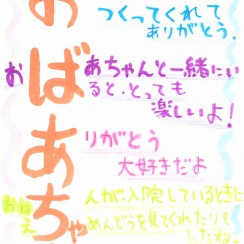 おばあちゃ
つくってくれて
ありがとう.
お
あちゃんと一緒にい
ると、とっても
楽しいよ!
りがとう
大好きだよ
おねえ
んが、入院しているときに
めんどうを見てくれたりも
したね。